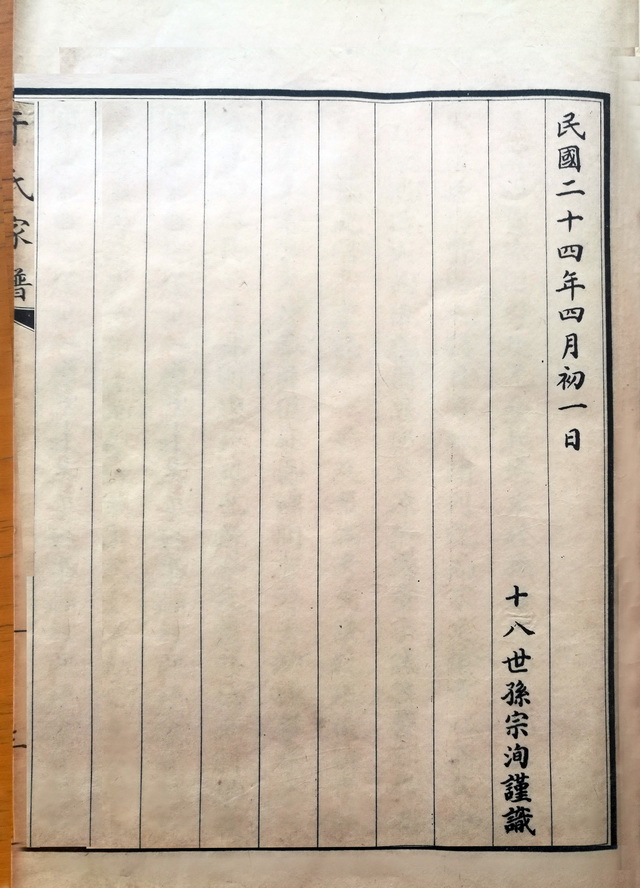 民國二十四年四月初一日
十八世孫宗洵謹識
氏家譜